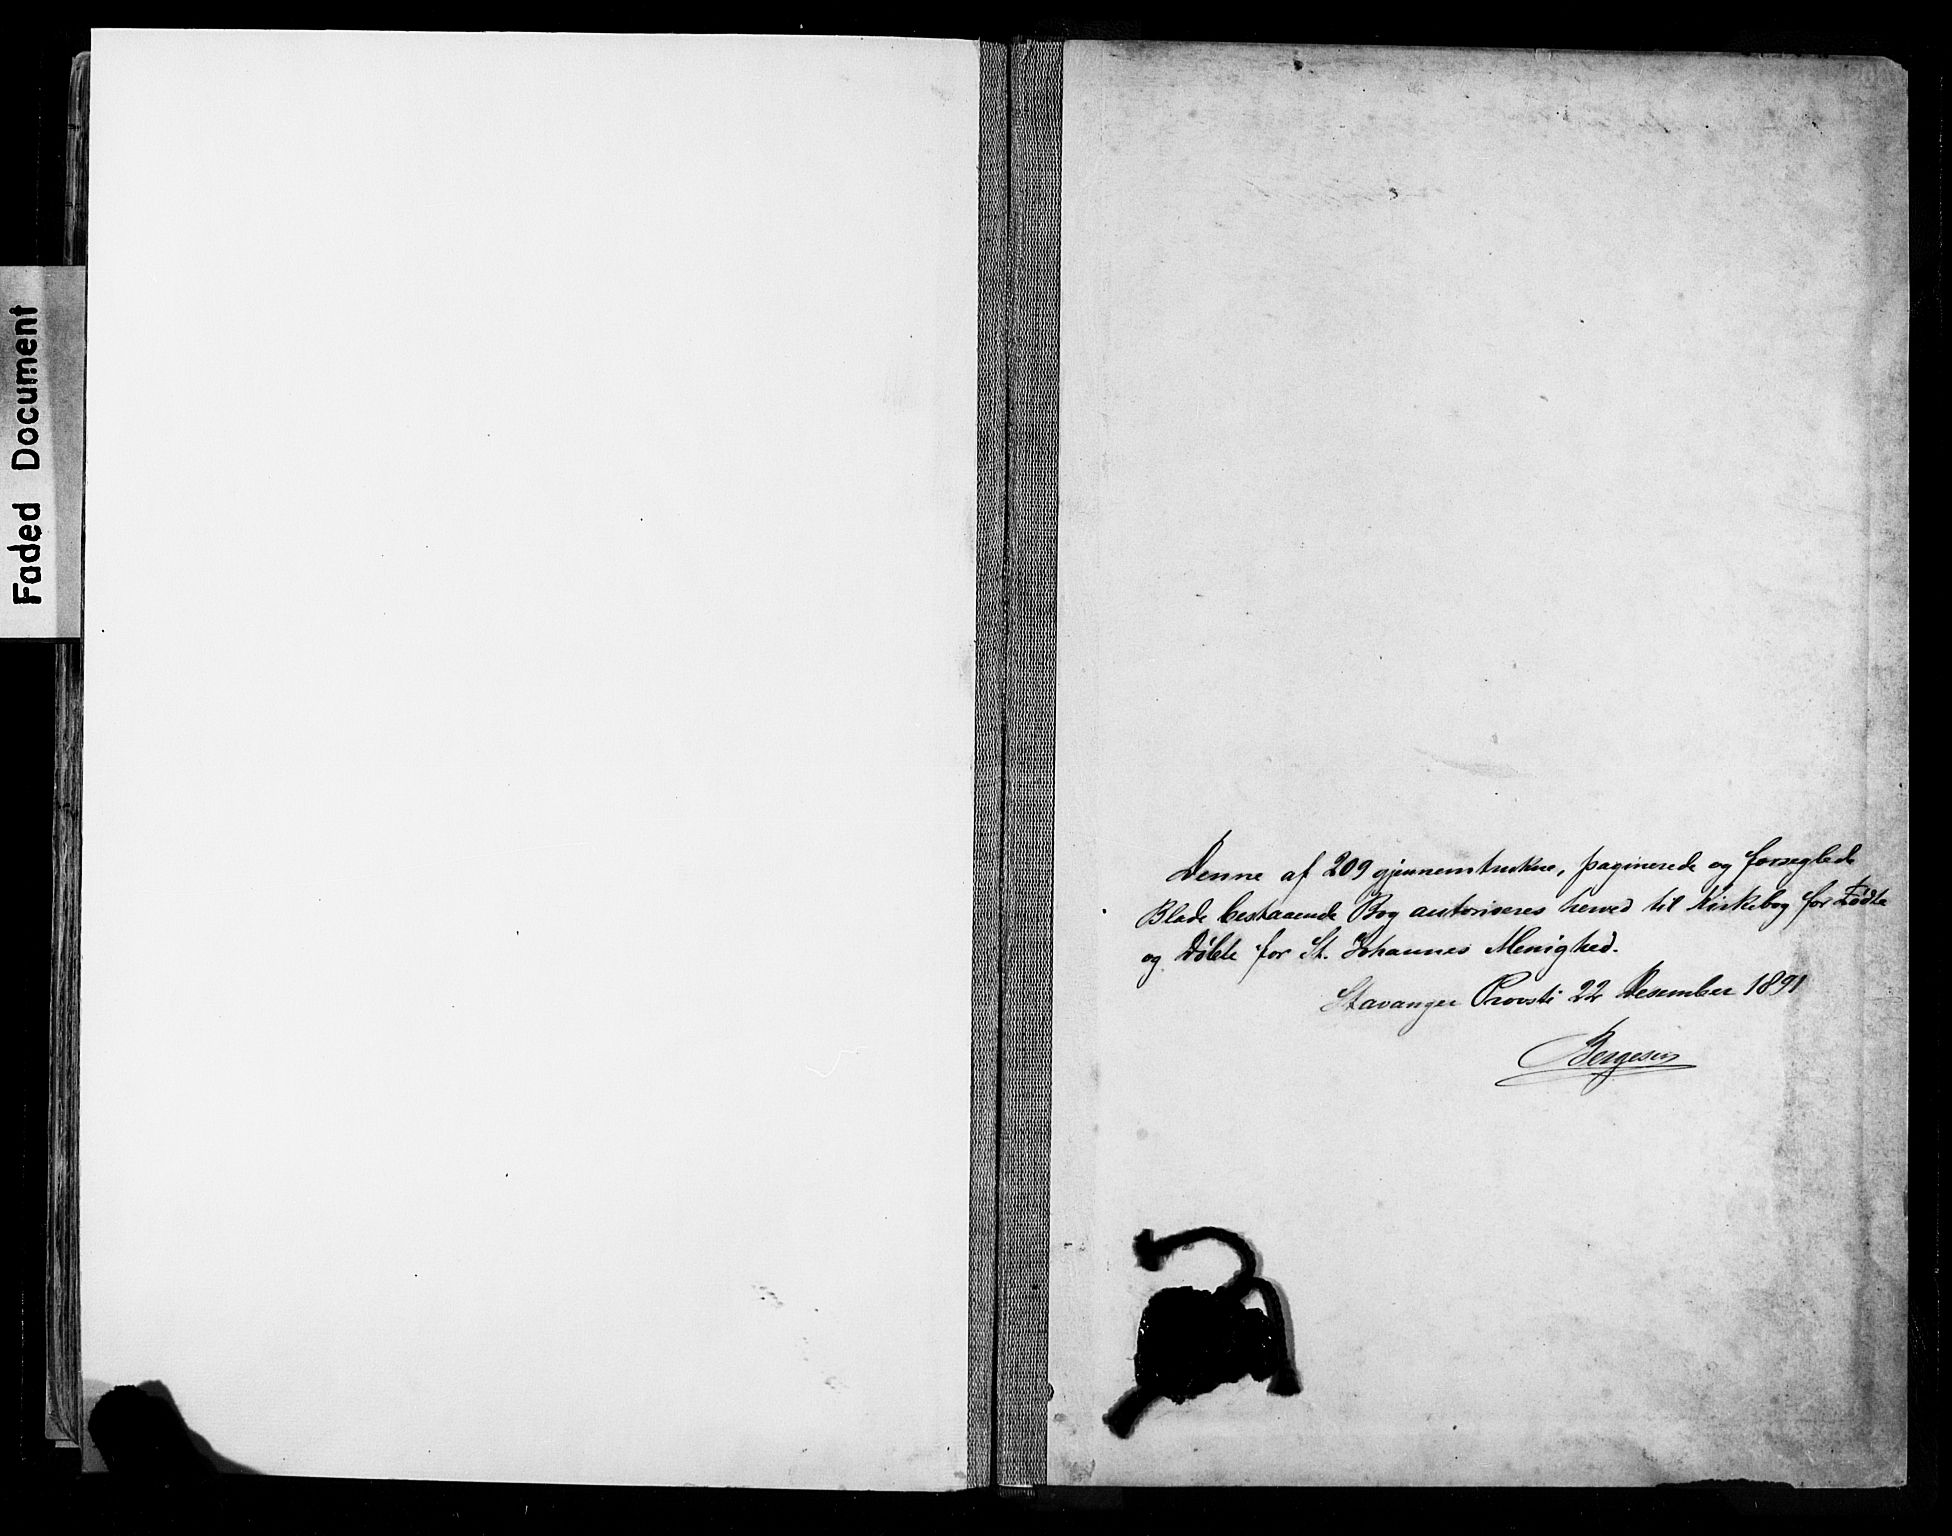 Faded Document
Denne af 209 gjennemtrukne, paginerede og forseglede
Blade bestaaende Bog autoriseres herved til Kirkebog for Fødte
og Døbte for St. Johannes Menighed.
Stavanger Provsti 22 Desember 1891
Bergesen